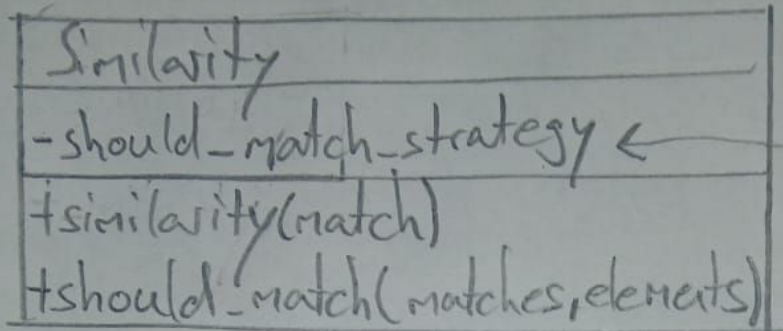 Similarity
-should_match_strategy
+similarity(match)
+should_match(matches,elements)